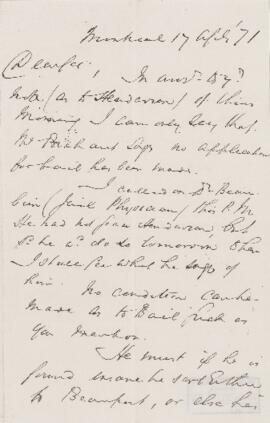 Montreal 17 April '71
Dear Sir, In answ. to yr.
note (as to Henderson) of this
morning I can only say that
Mr. says no application
for bail has been made.
I called on Dr. Beau-
bien (Jail Physician) this P.M.
He had not seen Henderson, but
sd. he wd. do so tomorrow when
I shall see what he says of
him. No condition can be
made as to Bail such as
you mention.
He must if he is
found insane be sent either
to Beauport, or else his